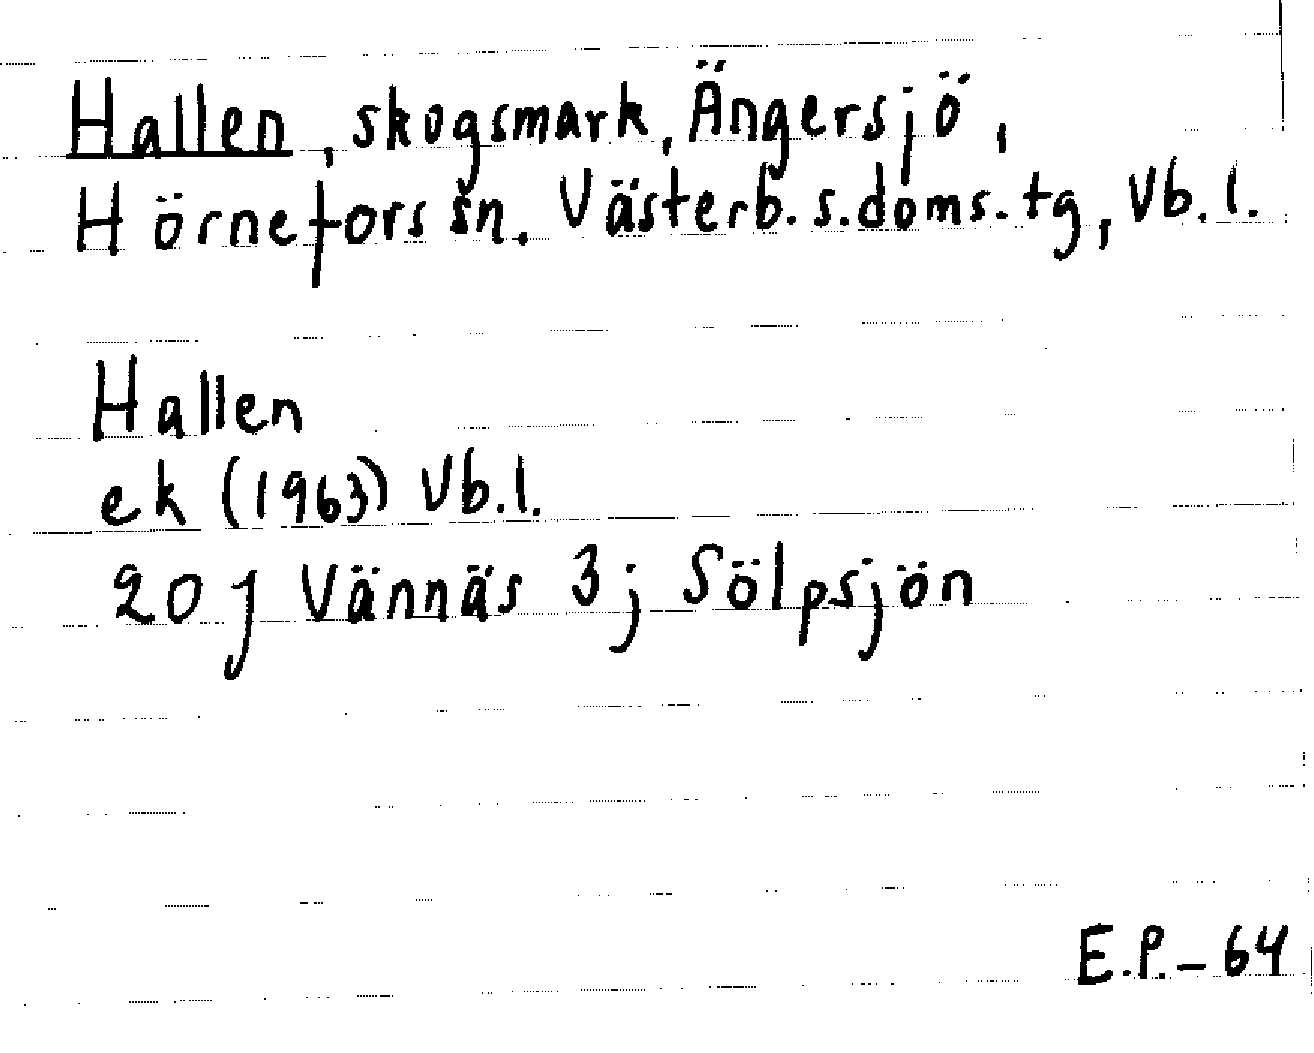 Hallen, skogsmark, Ängersjö,
Hörnefors sn. Västerb. s. doms. tg, Vb. l.
Hallen
ek (1963) Vb. l.
20 J Vännäs 3 j Sölpsjön
E.P. - 64